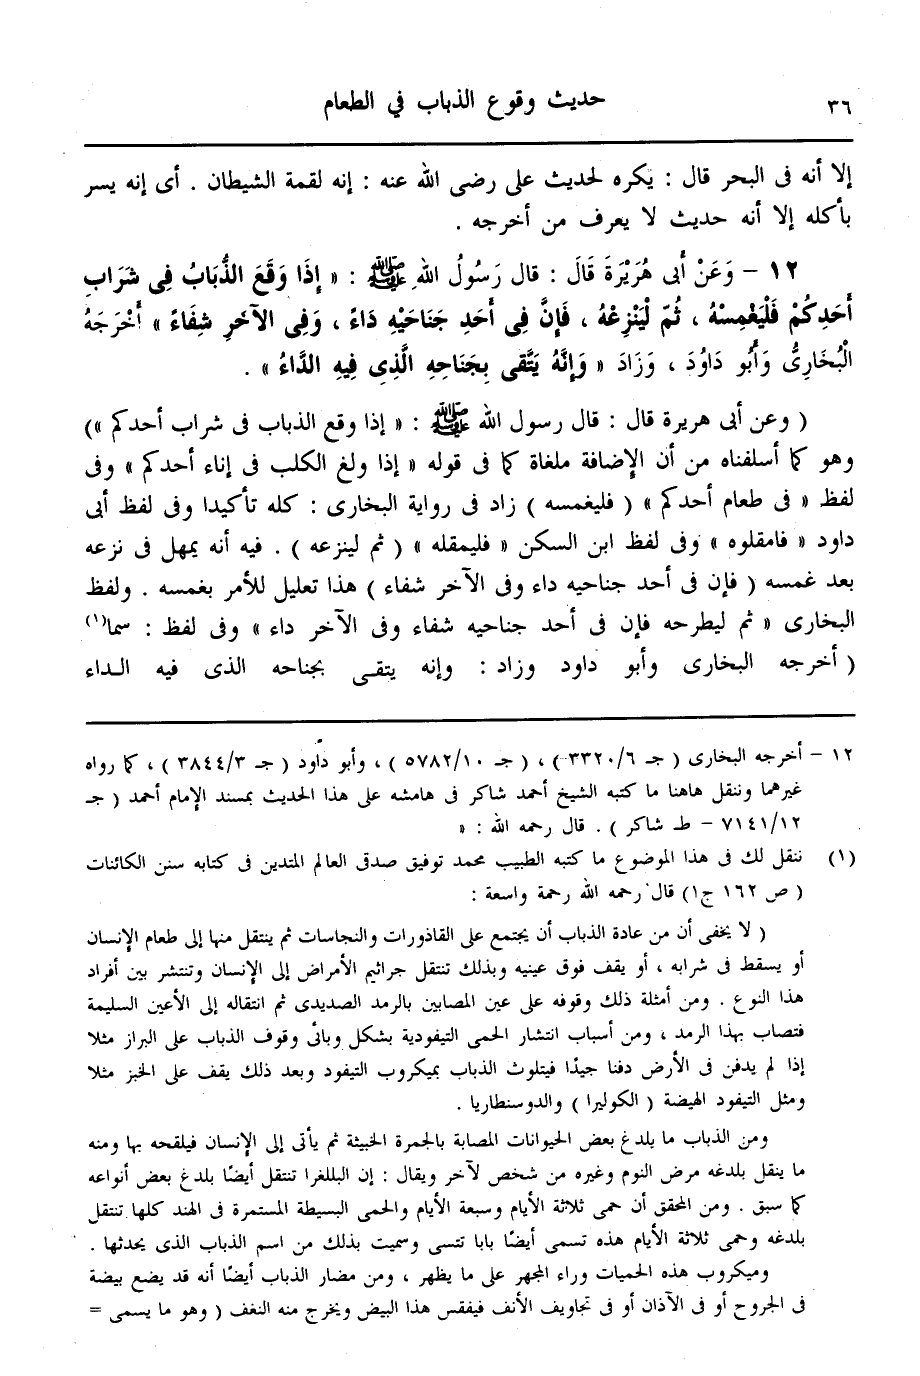 ٣٦
حديث وقوع الذباب في الطعام
إلا أنه فى البحر قال : يكره لحديث على رضى الله عنه : إنه لقمة الشيطان . أى إنه يسر
بأكله إلا أنه حديث لا يعرف من أخرجه .
١٢ – وَعَنْ أَبى هُرَيْرَةَ قَالَ : قال رَسُولُ اللهِ ﷺ : « إِذَا وَقَعَ الذُّبَابُ فِى شَرَابِ
أَحَدِكُمْ فَلْيَغْمِسْهُ ، ثُمّ لْيَنْزِعْهُ ، فَإِنَّ فِى أَحَدِ جَنَاحَيْهِ دَاءً ، وَفِى الآخَرِ شِفَاءً » أَخْرَجَهُ
الْبُخَارِىُّ وَأَبُو دَاوُدَ ، وَزَادَ « وَإِنَّهُ يَتَّقى بِجَنَاحِهِ الَّذِى فِيهِ الدَّاءُ » .
( وعن أبى هريرة قال : قال رسول الله ﷺ : « إذا وقع الذباب فى شراب أحدكم »)
وهو كما أسلفناه من أن الإضافة ملغاة كما فى قوله « إذا ولغ الكلب فى إناء أحدكم » وفى
لفظ « فى طعام أحدكم » ( فليغمسه ) زاد فى رواية البخارى : كله تأكيدا وفى لفظ أبى
داود « فامقلوه » وفى لفظ ابن السكن « فليمقله » ( ثم لينزعه ) . فيه أنه يمهل فى نزعه
بعد غمسه ( فإن فى أحد جناحيه داء وفى الآخر شفاء ) هذا تعليل للأمر بغمسه . ولفظ
البخارى « ثم ليطرحه فإن فى أحد جناحيه شفاء وفى الآخر داء » وفى لفظ : سما(١)
( أخرجه البخارى وأبو داود وزاد : وإنه يتقى بجناحه الذى فيه الداء
١٢ – أخرجه البخارى ( جـ ٣٣٢٠/٦ ) ، ( جـ ٥٧٨٢/١٠ ) ، وأبو داود ( جـ ٣٨٤٤/٣ ) ، كما رواه
غيرهما وننقل هاهنا ما كتبه الشيخ أحمد شاكر فى هامشه على هذا الحديث بمسند الإمام أحمد ( جـ
٧١٤١/١٢ – طـ شاكر ) . قال رحمه الله : «
(١) ننقل لك فى هذا الموضوع ما كتبه الطبيب محمد توفيق صدقى العالم المتدين فى كتابه سنن الكائنات
( ص ١٦٢ ج١) قال رحمه الله رحمة واسعة :
( لا يخفى أن من عادة الذباب أن يجتمع على القاذورات والنجاسات ثم ينتقل منها إلى طعام الإنسان
أو يسقط فى شرابه ، أو يقف فوق عينيه وبذلك تنتقل جراثيم الأمراض إلى الإنسان وتنتشر بين أفراد
هذا النوع . ومن أمثلة ذلك وقوفه على عين المصابين بالرمد الصديدى ثم انتقاله إلى الأعين السليمة
فتصاب بهذا الرمد ، ومن أسباب انتشار الحمى التيفودية بشكل وبائى وقوف الذباب على البراز مثلا
إذا لم يدفن فى الأرض دفنا جيدًا فيتلوث الذباب بميكروب التيفود وبعد ذلك يقف على الخبز مثلا
ومثل التيفود الهيضة ( الكوليرا ) والدوسنطاريا .
ومن الذباب ما يلدغ بعض الحيوانات المصابة بالجمرة الخبيثة ثم يأتى إلى الإنسان فيلقحه بها ومنه
ما ينقل بلدغه مرض النوم وغيره من شخص لآخر ويقال : إن البللغرا تنتقل أيضًا بلدغ بعض أنواعه
كما سبق . ومن المحقق أن حمى ثلاثة الأيام وسبعة الأيام والحمى البسيطة المستمرة فى الهند كلها تنتقل
بلدغه وحمى ثلاثة الأيام هذه تسمى أيضًا بابا تتسى وسميت بذلك من اسم الذباب الذى يحدثها .
وميكروب هذه الحميات وراء المجهر على ما يظهر ، ومن مضار الذباب أيضًا أنه قد يضع بيضة
فى الجروح أو فى الآذان أو فى تجاويف الأنف فيفقس هذا البيض ويخرج منه النغف ( وهو ما يسمى =